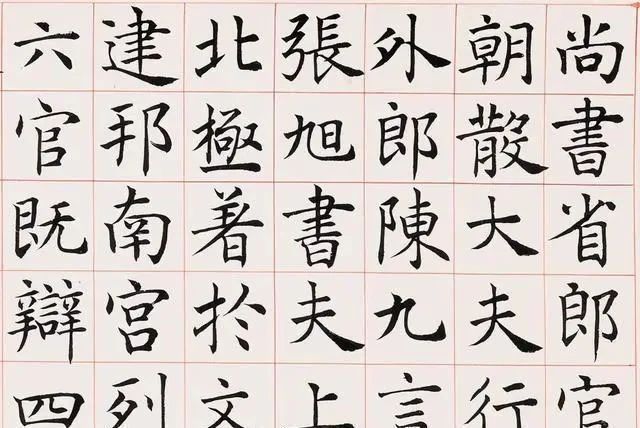 尚書省郎官
朝散大夫行
外郎陳九言
張旭書夫上
北極著於文
建邦南宮列
六官既辯四